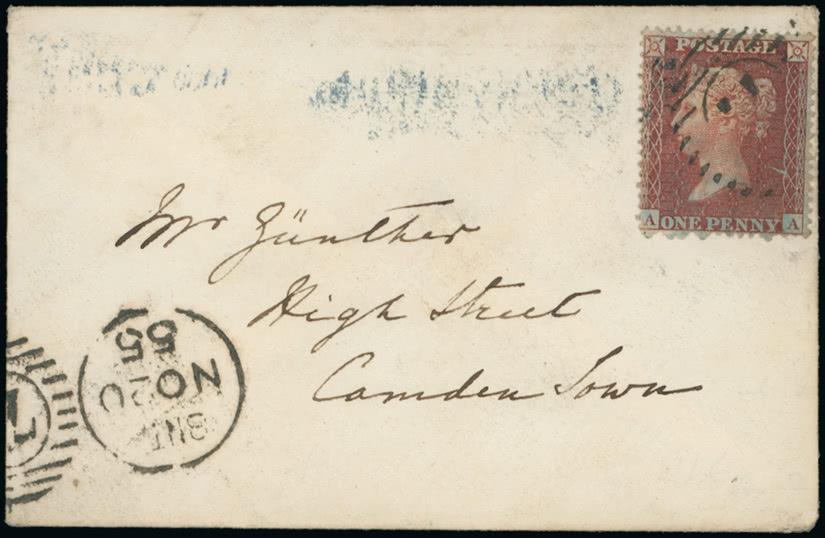 POSTAGE
A ONE PENNY A
Mr Günther
High Street
Camden Town
55
NO 20